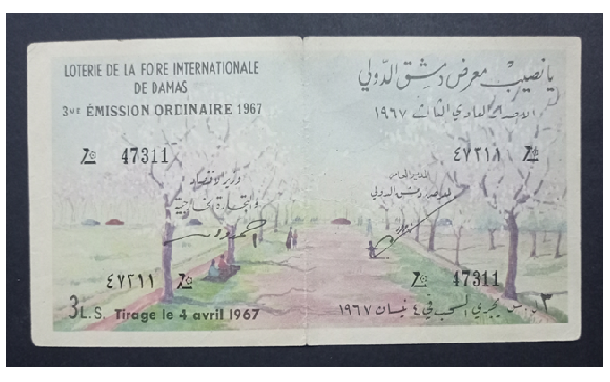 LOTERIE DE LA FOIRE INTERNATIONALE
DE DAMAS
3ME ÉMISSION ORDINAIRE 1967
47311
وزير الاقتصاد
والتجارة الخارجية
٤٧٣١١
3 L.S. Tirage le 4 avril 1967
يانصيب معرض دمشق الدولي
الاصدار العادي الثالث ١٩٦٧
٤٧٣١١
المدير العام
لمعرض دمشق الدولي
47311
٣ يجري السحب في ٤ نيسان ١٩٦٧